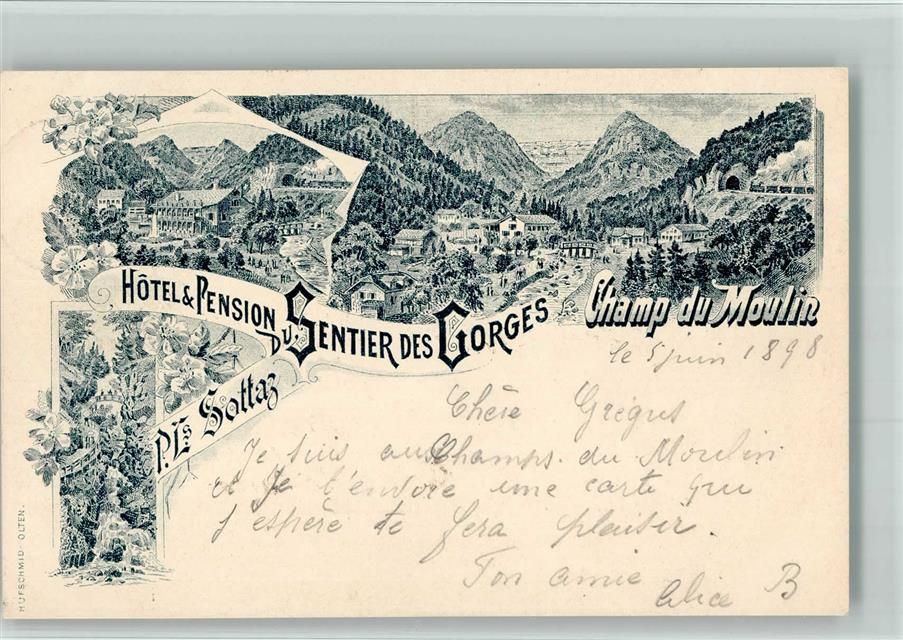 HÔTEL & PENSION
DU SENTIER DES GORGES
P. Ls Sottaz
Champ du Moulin
le 5 juin 1898
Chère
Je suis au Champs du Moulin
et Je t'envoie une carte que
j'espère te fera plaisir.
Ton amie
Alice B
HUFSCHMID OLTEN.